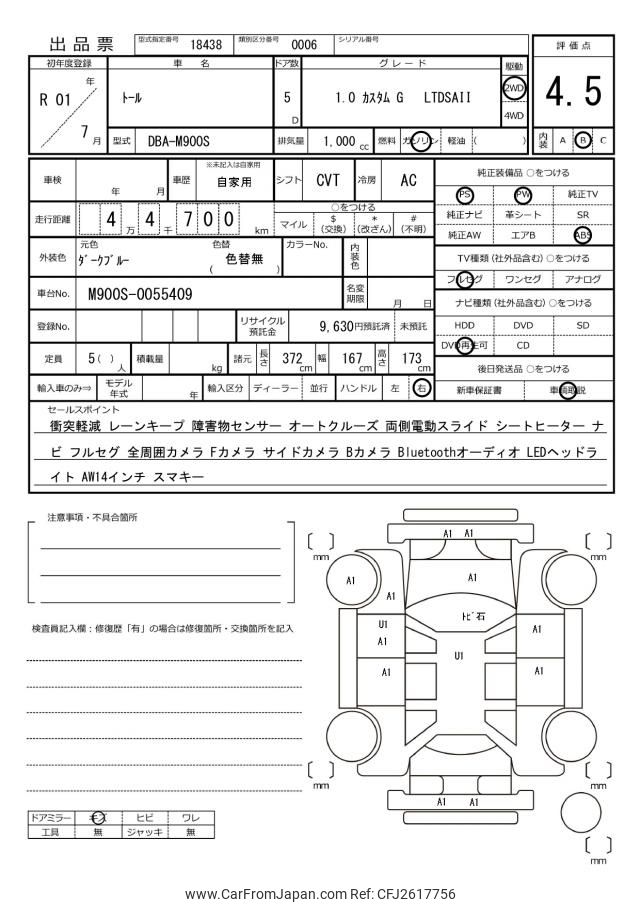 出品票 型式指定番号 18438 類別区分番号 0006 シリアル番号
初年度登録 車名 ドア数 グレード 駆動 評価点
R 01 年 7 月 トール 5 D 1.0 カスタム G LTDSAII 2WD 4WD 4.5
型式 DBA-M900S 排気量 1,000 cc 燃料 ガソリン 軽油 ( ) 内装 A B C
車検 年 月 車歴 ※未記入は自家用 自家用 シフト CVT 冷房 AC
純正装備品 ○をつける
PS PW 純正TV
純正ナビ 革シート SR
純正AW エアB ABS
走行距離 4 万 4 千 7 0 0 km ○をつける
マイル $ (交換) * (改ざん) # (不明)
外装色 元色 ダークブルー 色替 ( 色替無 ) カラーNo. 内装色
TV種類 (社外品含む) ○をつける
フルセグ ワンセグ アナログ
車台No. M900S-0055409 名変期限 月 日
ナビ種類 (社外品含む) ○をつける
HDD DVD SD
DVD再生可 CD
登録No. リサイクル預託金 9,630円預託済 未預託
定員 5 ( ) 人 積載量 kg 諸元 長さ 372 cm 幅 167 cm 高さ 173 cm
後日発送品 ○をつける
新車保証書 車輌取説
輸入車のみ⇒ モデル年式 年 輸入区分 ディーラー 並行 ハンドル 左 右
セールスポイント
衝突軽減 レーンキープ 障害物センサー オートクルーズ 両側電動スライド シートヒーター ナ
ビ フルセグ 全周囲カメラ Fカメラ サイドカメラ Bカメラ Bluetoothオーディオ LEDヘッドラ
イト AW14インチ スマキー
注意事項・不具合箇所
検査員記入欄：修復歴「有」の場合は修復箇所・交換箇所を記入
mm mm
A1 A1
A1 A1 A1
トビ石
U1 A1 A1
U1
A1 A1
mm mm
A1 A1
mm
ドアミラー キズ ヒビ ワレ
工具 無 ジャッキ 無
www.CarFromJapan.com Ref: CFJ2617756